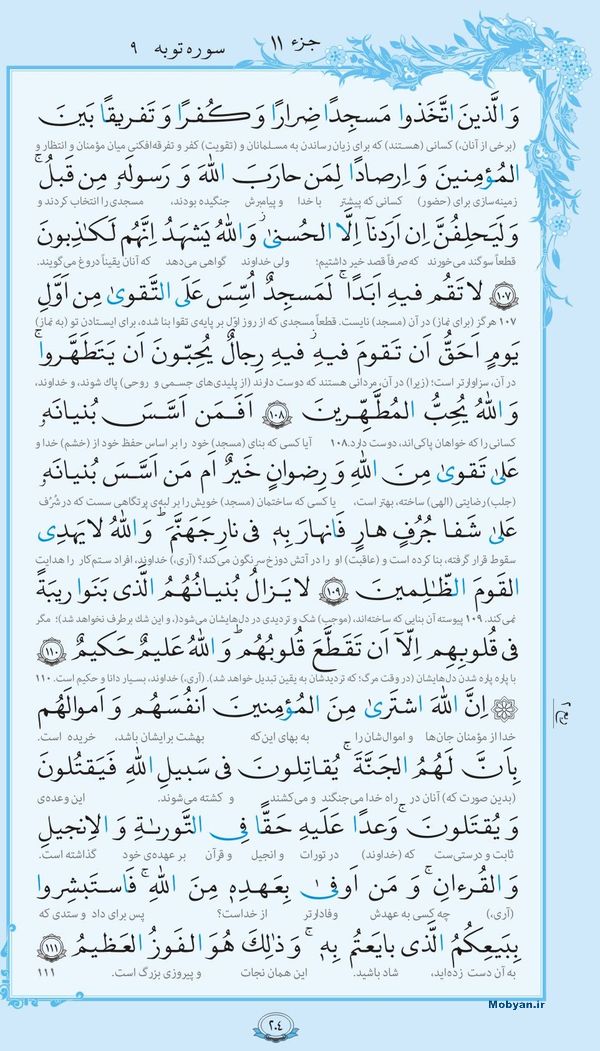 جزء ۱۱
سوره توبه ۹
وَ الَّذینَ اتَّخَذوا مَسجِدًا ضِرارًا وَ کُفرًا وَ تَفریقًا بَینَ
(برخی از آنان،) کسانی (هستند) که برای زیان رساندن به مسلمانان و (تقویت) کفر و تفرقه‌افکنی میان مؤمنان و انتظار و
المُؤمِنینَ وَ اِرصادًا لِمَن حارَبَ اللهَ وَ رَسولَهٗ مِن قَبلُ ۚ
زمینه‌سازی برای (حضور) کسانی که پیشتر با خدا و پیامبرش جنگیده بودند، مسجدی را انتخاب کردند و
وَ لَیَحلِفُنَّ اِن اَرَدنآ اِلَّا الحُسنیٰ ۖ وَ اللهُ یَشهَدُ اِنَّهُم لَکٰذِبونَ
قطعاً سوگند می‌خورند که صرفاً قصد خیر داشتیم؛ ولی خداوند گواهی می‌دهد که آنان یقیناً دروغ می‌گویند.
﴿۱۰۷﴾ لا تَقُم فیهِ اَبَدًا ۚ لَمَسجِدٌ اُسِّسَ عَلَی التَّقویٰ مِن اَوَّلِ
۱۰۷ هرگز (برای نماز) در آن (مسجد) نایست. قطعاً مسجدی که از روز اوّل بر پایه‌ی تقوا بنا شده، برای ایستادن تو (به نماز)
یَومٍ اَحَقُّ اَن تَقومَ فیهِ ۚ فیهِ رِجالٌ یُحِبّونَ اَن یَتَطَهَّروا ۚ
در آن، سزاوارتر است؛ (زیرا) در آن، مردانی هستند که دوست دارند (از پلیدی‌های جسمی و روحی) پاك شوند، و خداوند،
وَ اللهُ یُحِبُّ المُطَّهِّرینَ ﴿۱۰۸﴾ اَفَمَن اَسَّسَ بُنیانَهٗ
کسانی را که خواهان پاکی‌اند، دوست دارد. ۱۰۸ آیا کسی که بنای (مسجد) خود را بر اساس حفظ خود از (خشم) خدا و
عَلیٰ تَقویٰ مِنَ اللهِ وَ رِضوانٍ خَیرٌ اَم مَن اَسَّسَ بُنیانَهٗ
(جلب) رضایتی (الهی) ساخته، بهتر است، یا کسی که ساختمان (مسجد) خویش را بر لبه‌ی پرتگاهی سست که در شُرُف
عَلیٰ شَفا جُرُفٍ هارٍ فَانهارَ بِهٖ فی نارِ جَهَنَّمَ ۗ وَ اللهُ لا یَهدِی
سقوط قرار گرفته، بنا کرده است و (عاقبت) او را در آتش دوزخ سرنگون می‌کند؟ (آری،) خداوند، افراد ستم‌کار را هدایت
القَومَ الظّٰلِمینَ ﴿۱۰۹﴾ لا یَزالُ بُنیانُهُمُ الَّذی بَنَوا ریبَةً
نمی‌کند. ۱۰۹ پیوسته آن بنایی که ساخته‌اند، (موجب) شک و تردیدی در دل‌هایشان می‌شود(، و این شك برطرف نخواهد شد)؛ مگر
فی قُلوبِهِم اِلّآ اَن تَقَطَّعَ قُلوبُهُم ۗ وَ اللهُ عَلیمٌ حَکیمٌ ﴿۱۱۰﴾
با پاره پاره شدن دل‌هایشان (در وقت مرگ؛ که تردیدشان به یقین تبدیل خواهد شد). (آری،) خداوند، بسیار دانا و حکیم است. ۱۱۰
۞ اِنَّ اللهَ اشتَریٰ مِنَ المُؤمِنینَ اَنفُسَهُم وَ اَموالَهُم
خدا از مؤمنان جان‌ها و اموال‌شان را به بهای این‌که بهشت برایشان باشد، خریده است.
بِاَنَّ لَهُمُ الجَنَّةَ ۚ یُقاتِلونَ فی سَبیلِ اللهِ فَیَقتُلونَ
(بدین صورت که) آنان در راه خدا می‌جنگند و می‌کشند و کشته می‌شوند. این وعده‌ی
وَ یُقتَلونَ ۖ وَعدًا عَلَیهِ حَقًّا فِی التَّوراةِ وَ الاِنجیلِ
ثابت و درستی‌ست که (خداوند) در تورات و انجیل و قرآن بر عهده‌ی خود گذاشته است.
وَ القُرءانِ ۚ وَ مَن اَوفیٰ بِعَهدِهٖ مِنَ اللهِ ۚ فَاستَبشِروا
(آری،) چه کسی به عهدش وفادارتر از خداست؟ پس برای داد و ستدی که
بِبَیعِکُمُ الَّذی بایَعتُم بِهٖ ۚ وَ ذٰلِكَ هُوَ الفَوزُ العَظیمُ ﴿۱۱۱﴾
به آن دست زده‌اید، شاد باشید. این همان نجات و پیروزی بزرگ است. ۱۱۱
Mobyan.ir
۲۰٤